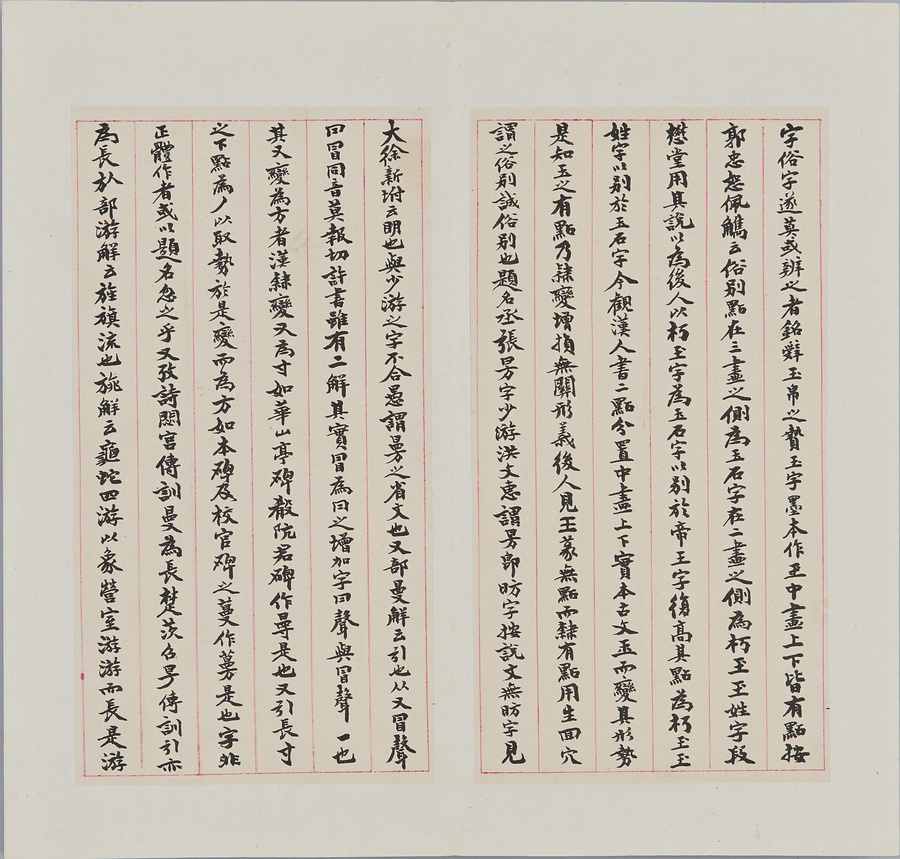 字俗字遂莫或辨之者銘辤玉帛之贄玉字墨本作玊中畫上下皆有點按
郭忠恕佩觿云俗別點在三畫之側為玉石字在二畫之側為朽玊王姓字段
懋堂用其說以為後人以朽玊字為玉石字以別於帝王字復高其點為朽玊玉
姓字以別於玉石字今觀漢人書二點分置中畫上下實本古文而變其形勢
是知玉之有點乃隸變增損無關形義後人見王篆無點而隸有點用生面穴
謂之俗別誠俗別也題名丞張昮字少游洪文惠謂昮即昉字按說文無昉字見
大徐新附云明也與少游之字不合愚謂昮之省文也又部曼解云引也从又冒聲
曰冒同音莫報切許書雖有二解其實冒為曰之增加字曰聲與冒聲一也
其又變為方者漢隸變又為寸如華山亭碑殽阮君碑作㝵是也又引長寸
之下點為丿以取勢於是變而為方如本碑及校官碑之蔓作蕄是也字非
正體作者或以題名忽之乎又攷詩閟宮傳訓曼為長楚茨召旻傳訓引亦
為長㫃部游解云旌旗流也旐解云龜蛇四游以象營室游游而長是游